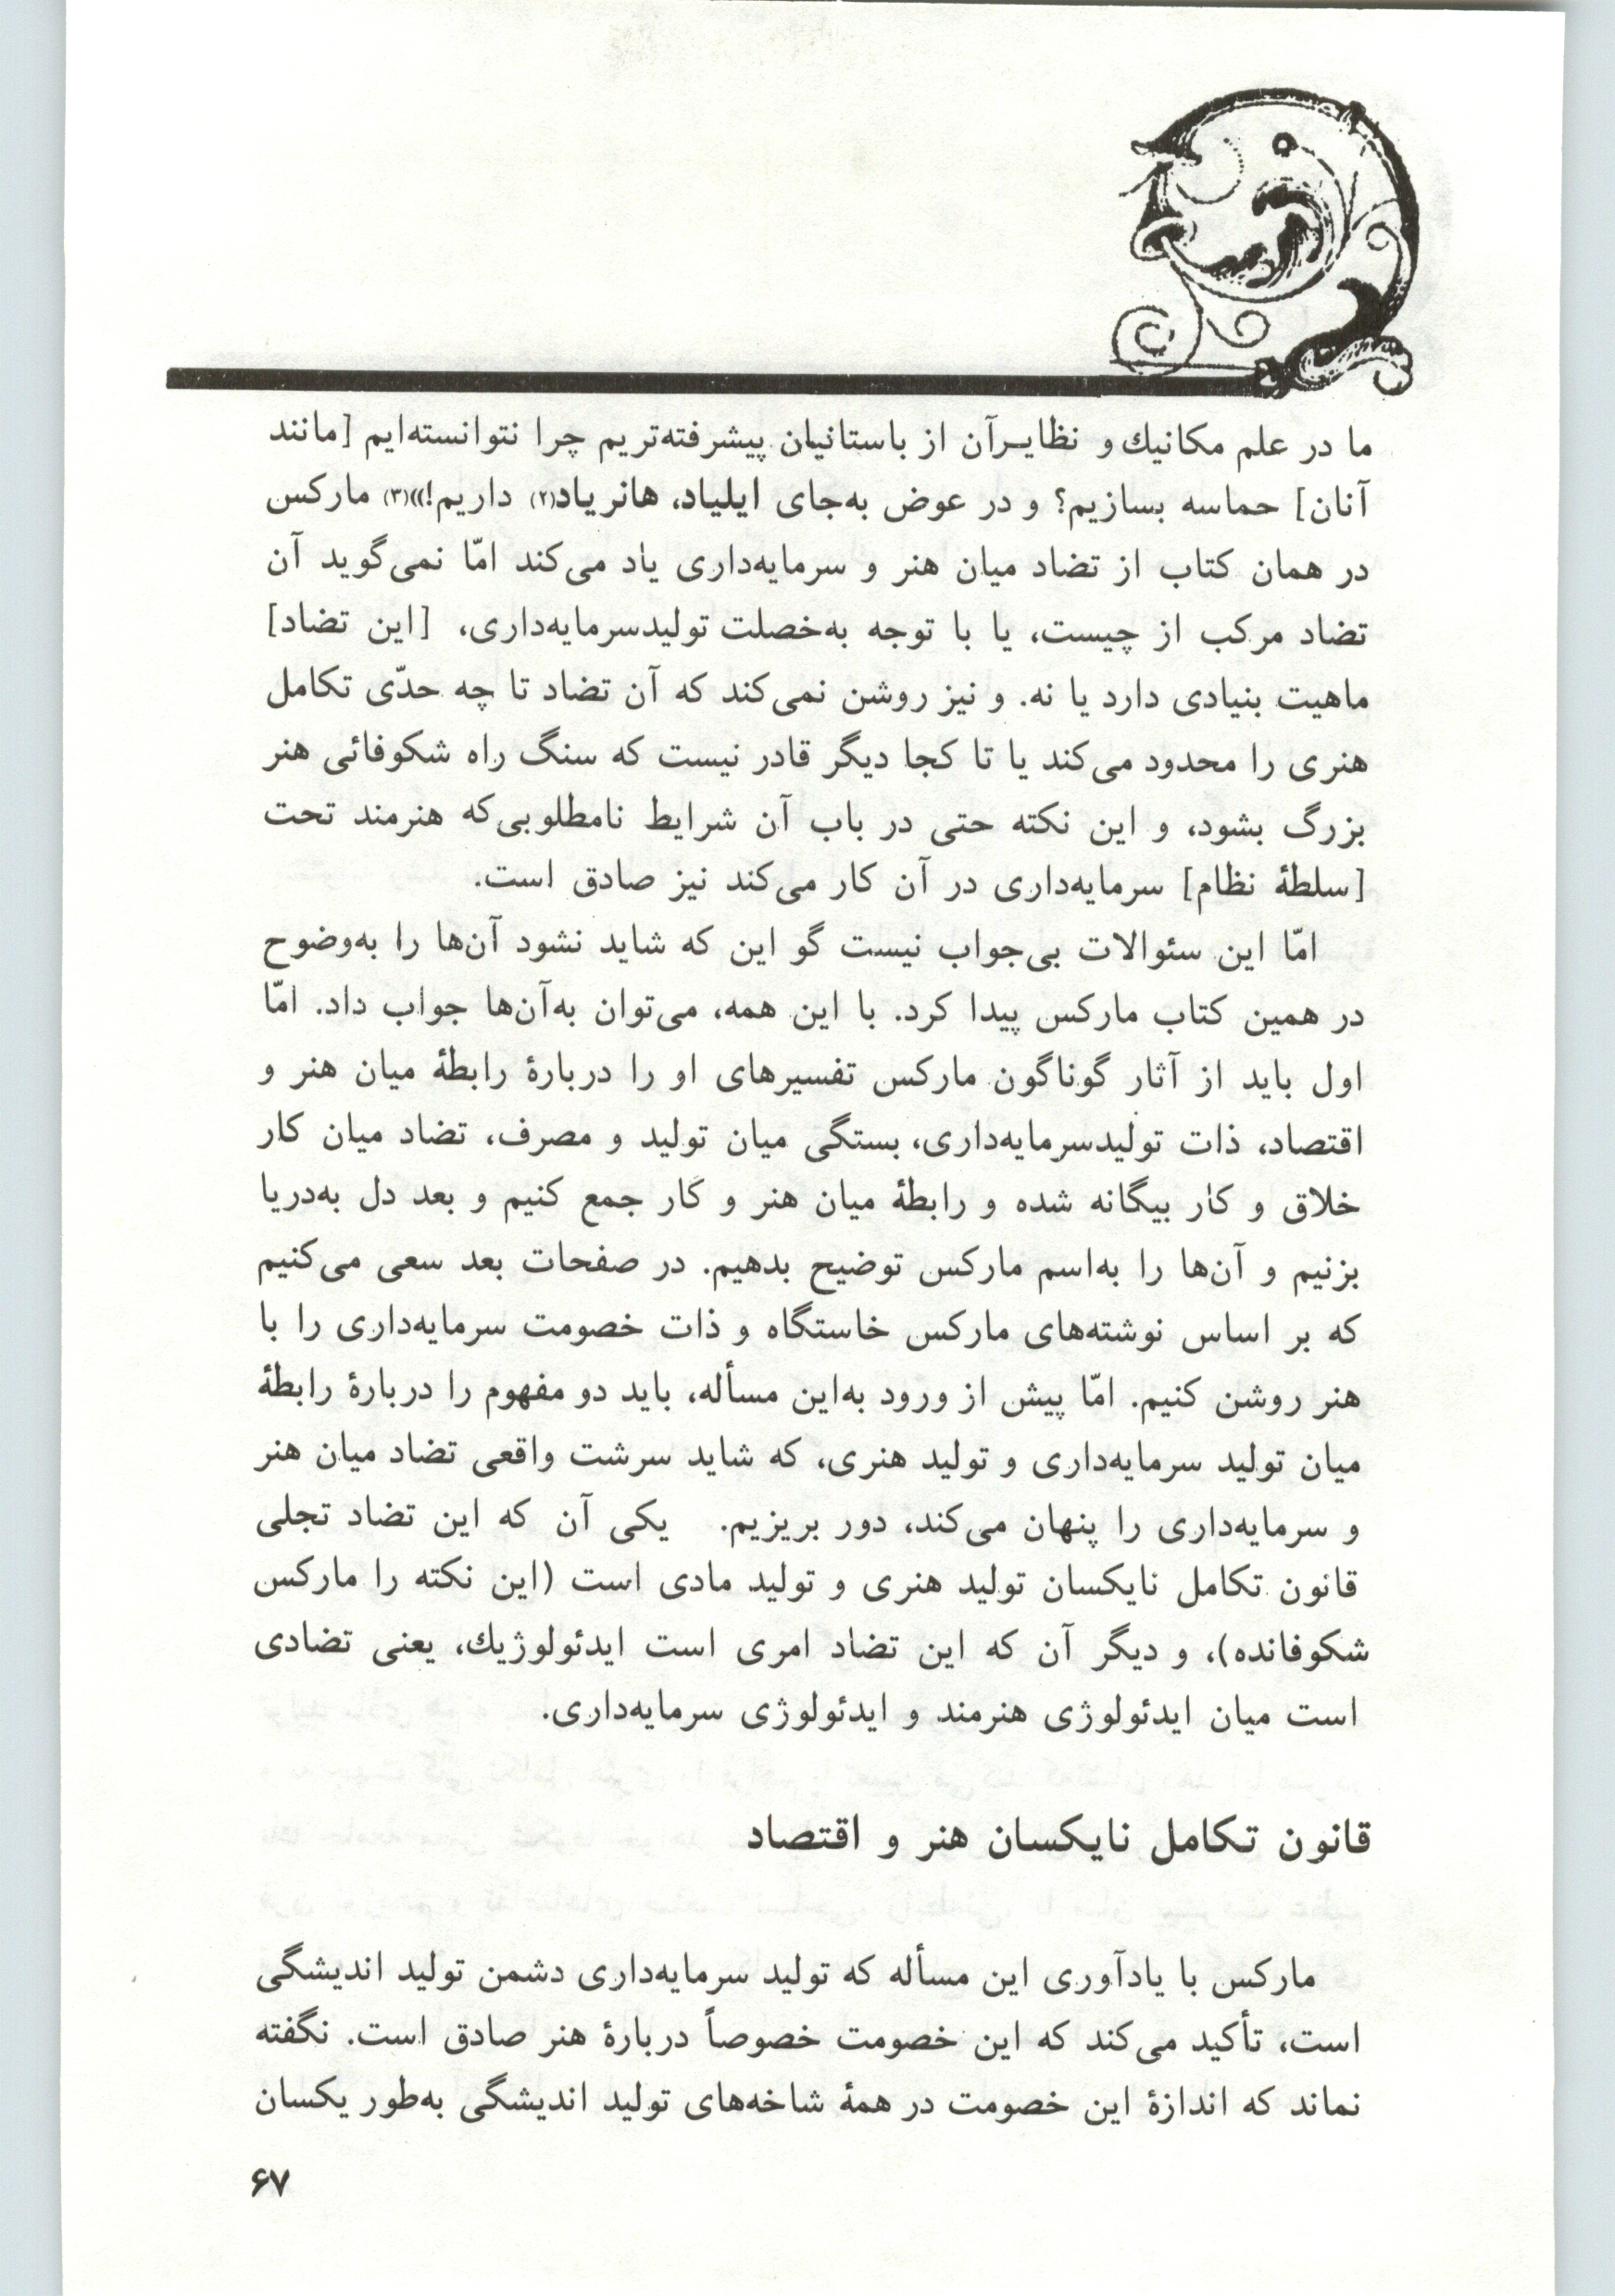 ما در علم مکانیك و نظایرآن از باستانیان پیشرفته‌تریم چرا نتوانسته‌ایم [مانند
آنان] حماسه بسازیم؟ و در عوض به‌جای ایلیاد، هانریاد(۲) داریم!»(۳) مارکس
در همان کتاب از تضاد میان هنر و سرمایه‌داری یاد می‌کند امّا نمی‌گوید آن
تضاد مرکب از چیست، یا با توجه به‌خصلت تولیدسرمایه‌داری، [این تضاد]
ماهیت بنیادی دارد یا نه. و نیز روشن نمی‌کند که آن تضاد تا چه حدّی تکامل
هنری را محدود می‌کند یا تا کجا دیگر قادر نیست که سنگ راه شکوفائی هنر
بزرگ بشود، و این نکته حتی در باب آن شرایط نامطلوبی‌که هنرمند تحت
[سلطهٔ نظام] سرمایه‌داری در آن کار می‌کند نیز صادق است.
امّا این سئوالات بی‌جواب نیست گو این که شاید نشود آن‌ها را به‌وضوح
در همین کتاب مارکس پیدا کرد. با این همه، می‌توان به‌آن‌ها جواب داد. امّا
اول باید از آثار گوناگون مارکس تفسیرهای او را دربارهٔ رابطهٔ میان هنر و
اقتصاد، ذات تولیدسرمایه‌داری، بستگی میان تولید و مصرف، تضاد میان کار
خلاق و کار بیگانه شده و رابطهٔ میان هنر و کار جمع کنیم و بعد دل به‌دریا
بزنیم و آن‌ها را به‌اسم مارکس توضیح بدهیم. در صفحات بعد سعی می‌کنیم
که بر اساس نوشته‌های مارکس خاستگاه و ذات خصومت سرمایه‌داری را با
هنر روشن کنیم. امّا پیش از ورود به‌این مسأله، باید دو مفهوم را دربارهٔ رابطهٔ
میان تولید سرمایه‌داری و تولید هنری، که شاید سرشت واقعی تضاد میان هنر
و سرمایه‌داری را پنهان می‌کند، دور بریزیم. یکی آن که این تضاد تجلی
قانون تکامل نایکسان تولید هنری و تولید مادی است (این نکته را مارکس
شکوفانده)، و دیگر آن که این تضاد امری است ایدئولوژیك، یعنی تضادی
است میان ایدئولوژی هنرمند و ایدئولوژی سرمایه‌داری.
قانون تکامل نایکسان هنر و اقتصاد
مارکس با یادآوری این مسأله که تولید سرمایه‌داری دشمن تولید اندیشگی
است، تأکید می‌کند که این خصومت خصوصاً دربارهٔ هنر صادق است. نگفته
نماند که اندازهٔ این خصومت در همهٔ شاخه‌های تولید اندیشگی به‌طور یکسان
۶۷